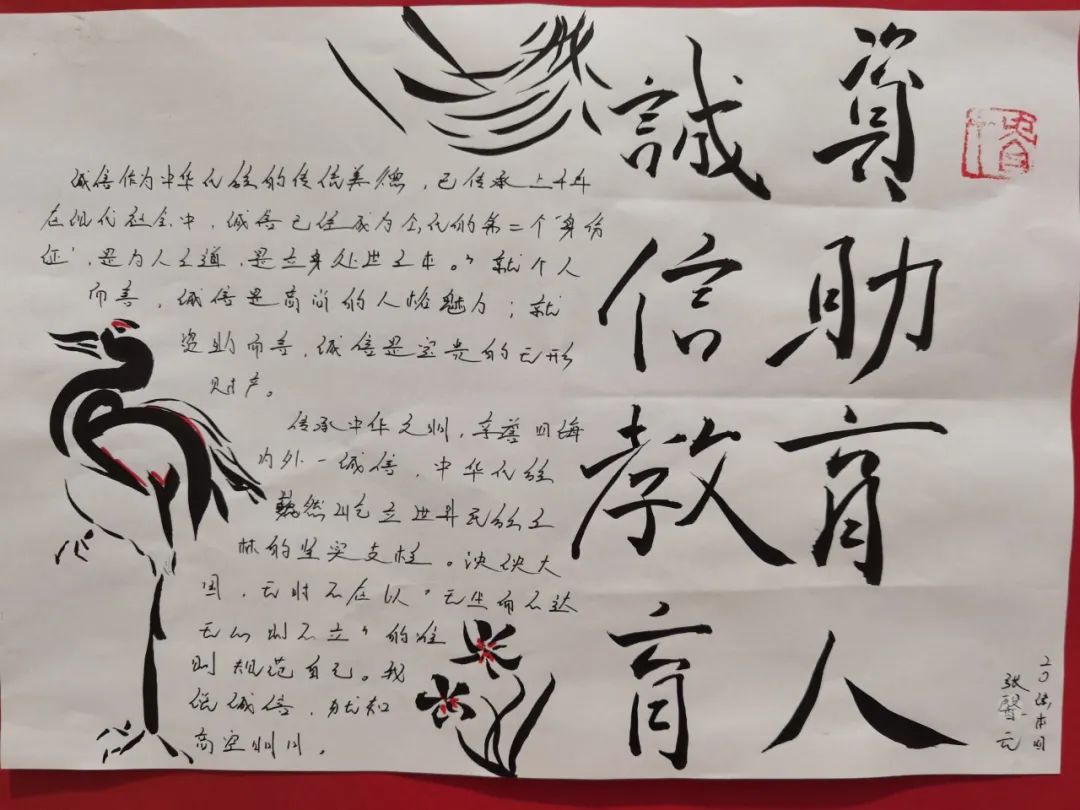 資助育人
誠信教育
诚信作为中华民族的传统美德，已传承上千年
在现代社会中，诚信已经成为公民的第二个“身份
证”，是为人之道，是立身处世之本。”就个人
而言，诚信是高尚的人格魅力；就
资助而言，诚信是宝贵的无形
财产。
传承中华文明，享誉四海
内外—诚信，中华民族
巍然屹立世界民族之
林的坚实支柱。泱泱大
国，无时不在以“无而不达
无则不立”的准
则规范自己。我
诚信，知
高
20法本四
张元